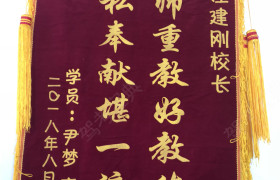 建刚校长
师重教好教
私奉献堪一
学员：尹梦
二〇一八年八月